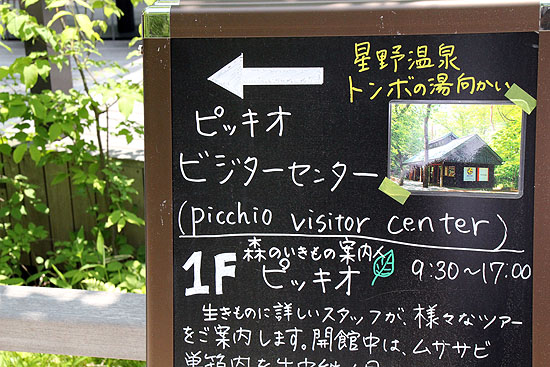 星野温泉
トンボの湯向かい
ピッキオ
ビジターセンター
(picchio visitor center)
森のいきもの案内人
1F ピッキオ 9:30～17:00
生きものに詳しいスタッフが、様々なツアー
をご案内します。開館中は、ムササビ
巣箱内を生中継